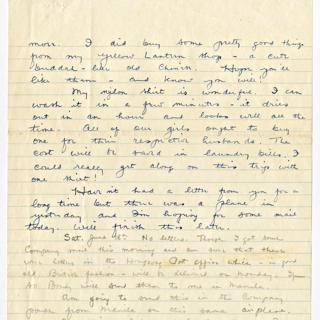 morn. I did buy some pretty good things
from my yellow Lantern shop - a cute
buddah - like old Chinese. Hope you'll
like them - and know you will!
My nylon shirt is wonderful. I can
wash it in a few minutes - it dries
out in an hour and looks well all the
time. All of our girls ought to buy
one for their respective husbands. The
cost will be saved in laundry bills. I
could really get along on this trip with
one shirt!
Haven't had a letter from you for a
long time but there was a plane in
yesterday and I'm hoping for some mail
today. Will finish this later.
Sat. June 18. No letters. Though I got some
Company mail this morning and am sure that there
were letters in the Hongkong Post office which - in good
old British fashion - will be delivered on Monday.
so Boney will send them to me in Manila.
Am going to send this in the Company
from Manila on this same airplane.